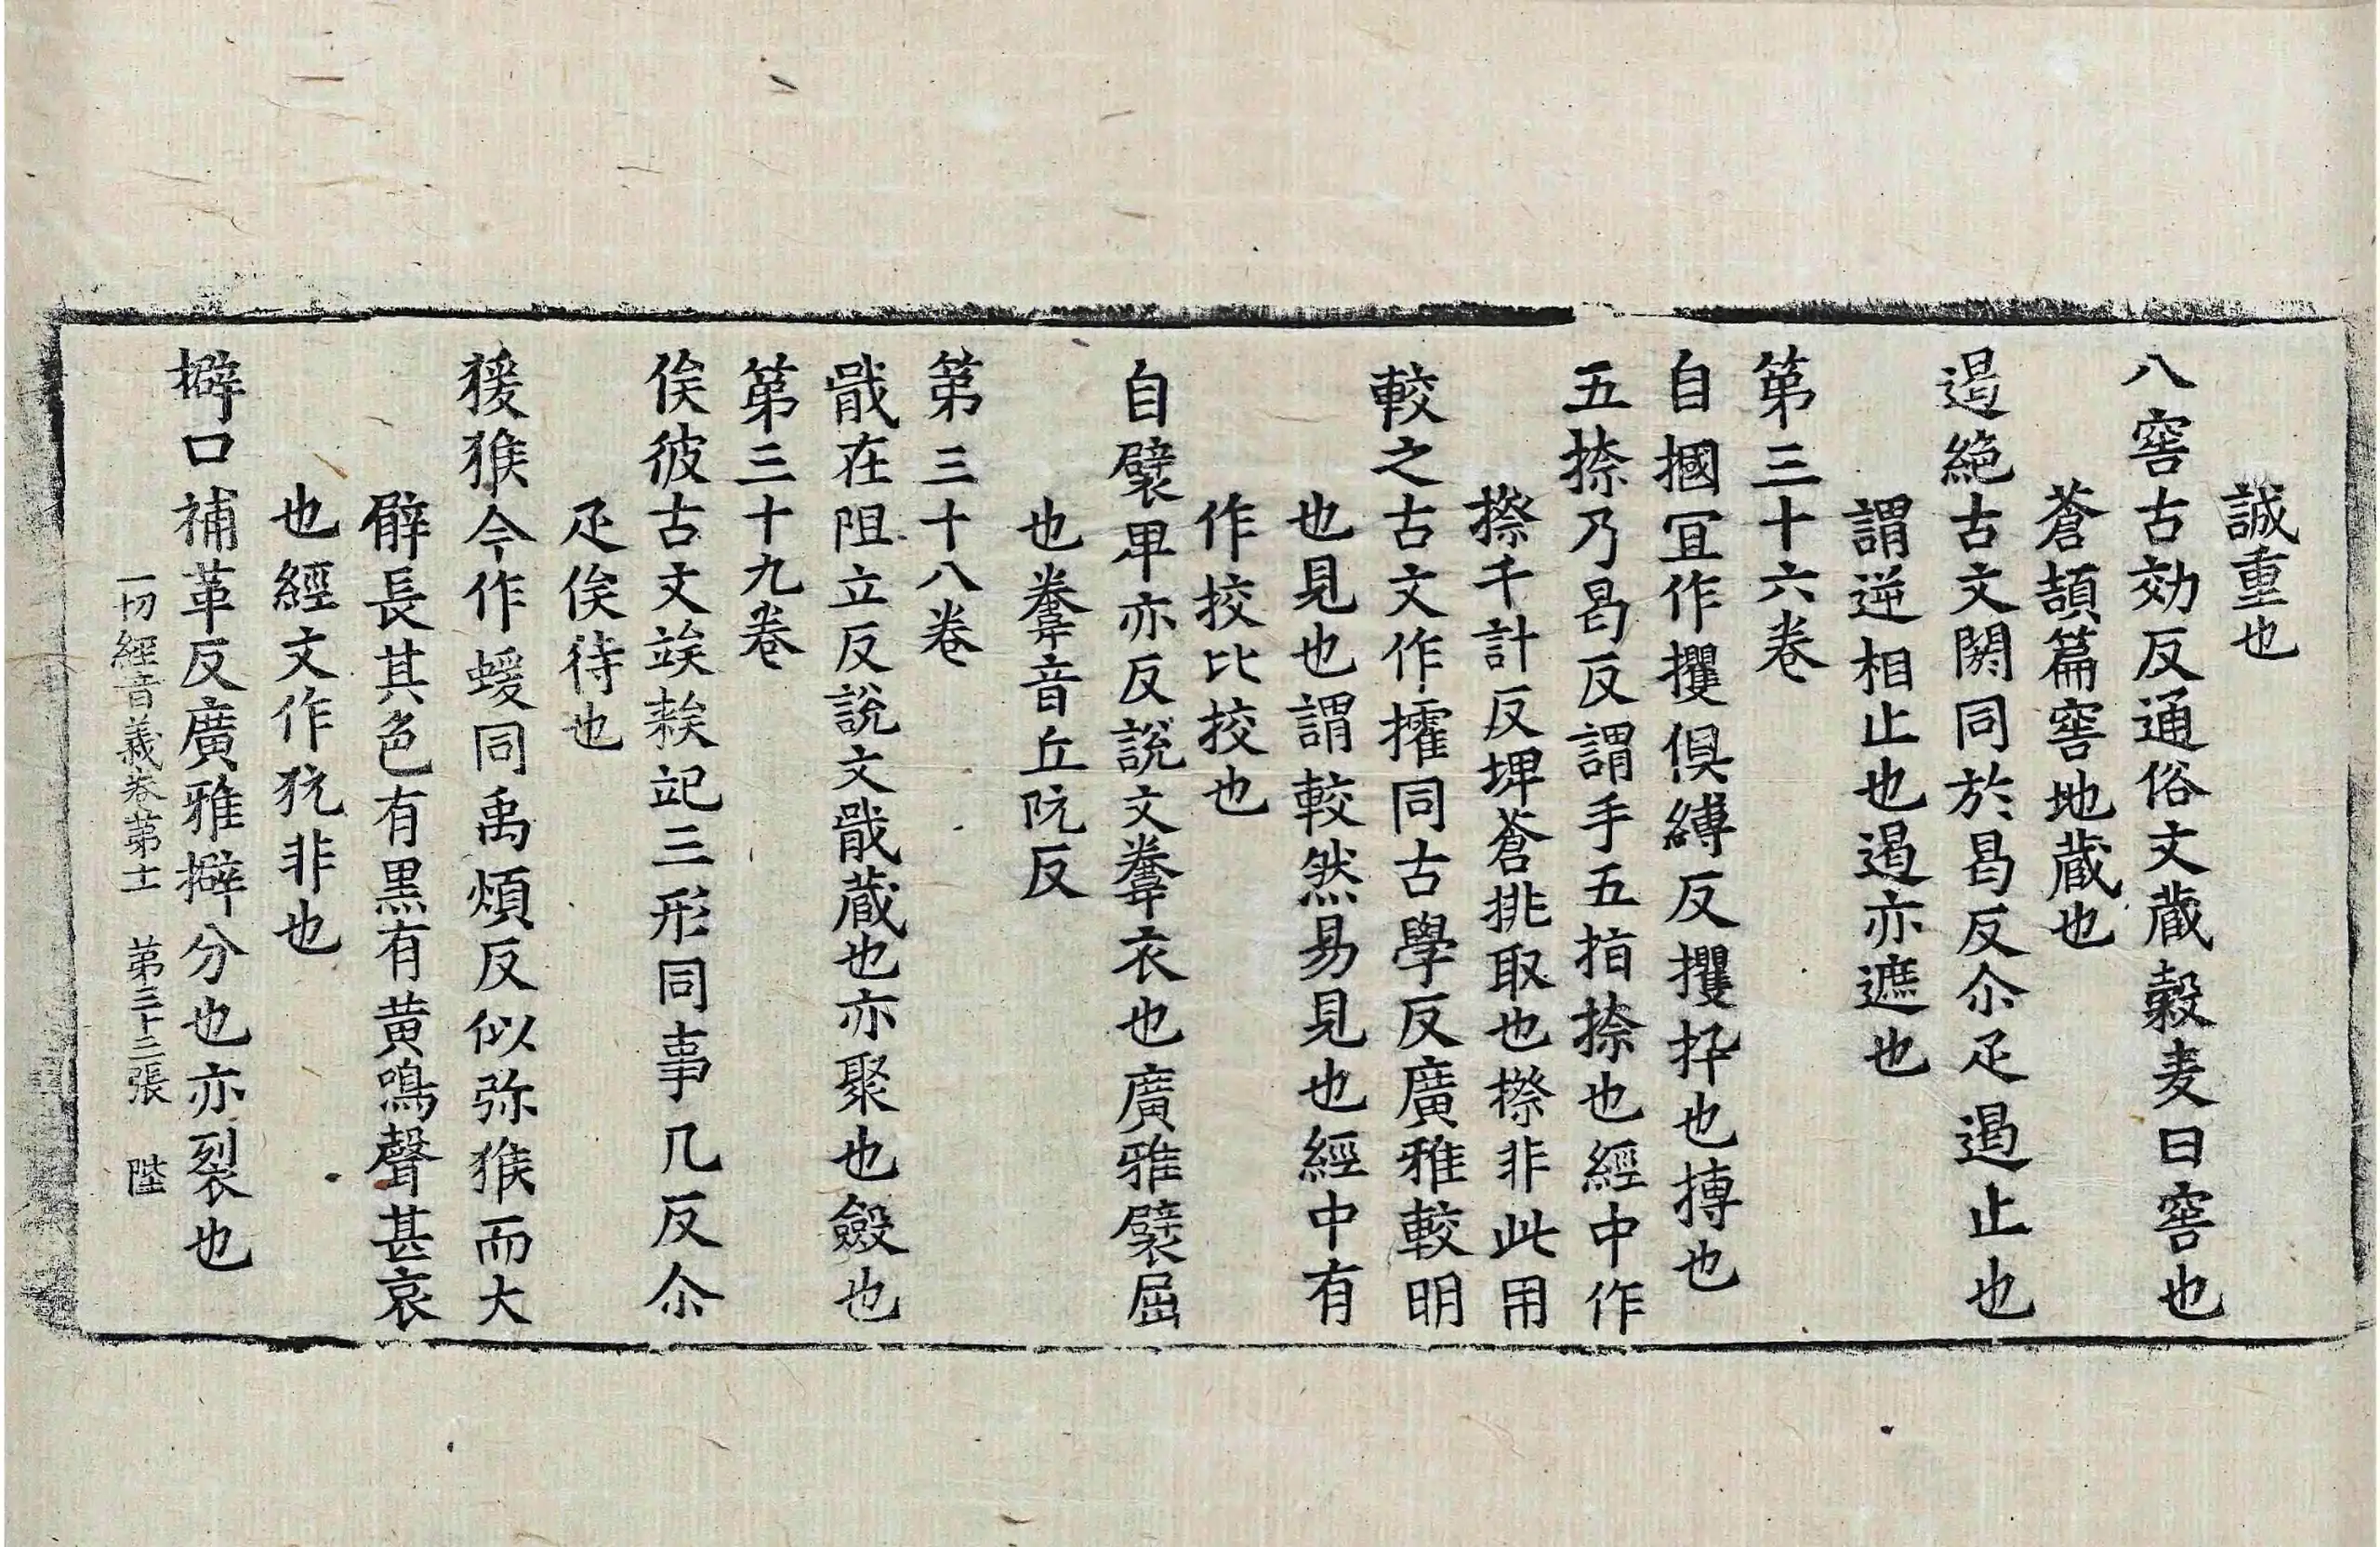 誠重也
八窖古効反通俗文蔵穀麦曰窖也
蒼頡篇窖地蔵也
遏絶古文閼同於曷反尒疋遏止也
謂逆相止也遏亦遮也
第三十六卷
自摑冝作攫俱縛反攫扞也摶也
五捺乃曷反謂手五指捺也經中作
擦千計反埤蒼挑取也擦非此用
較之古文作㩁同古學反廣雅較明
也見也謂較然易見也經中有
作挍比挍也
自襞卑亦反說文韏衣也廣雅襞屈
也韏音丘阮反
第三十八卷
戢在阻立反說文戢蔵也亦聚也斂也
第三十九卷
俟彼古文竢䇃𥏳三形同事几反尒
疋俟待也
猨猴今作蝯同禹煩反似弥猴而大
臂長其色有黒有黄鳴聲甚哀
也經文作犺非也
擗口補革反廣雅擗分也亦裂也
一切經音義卷第十一 第三十二張 陛